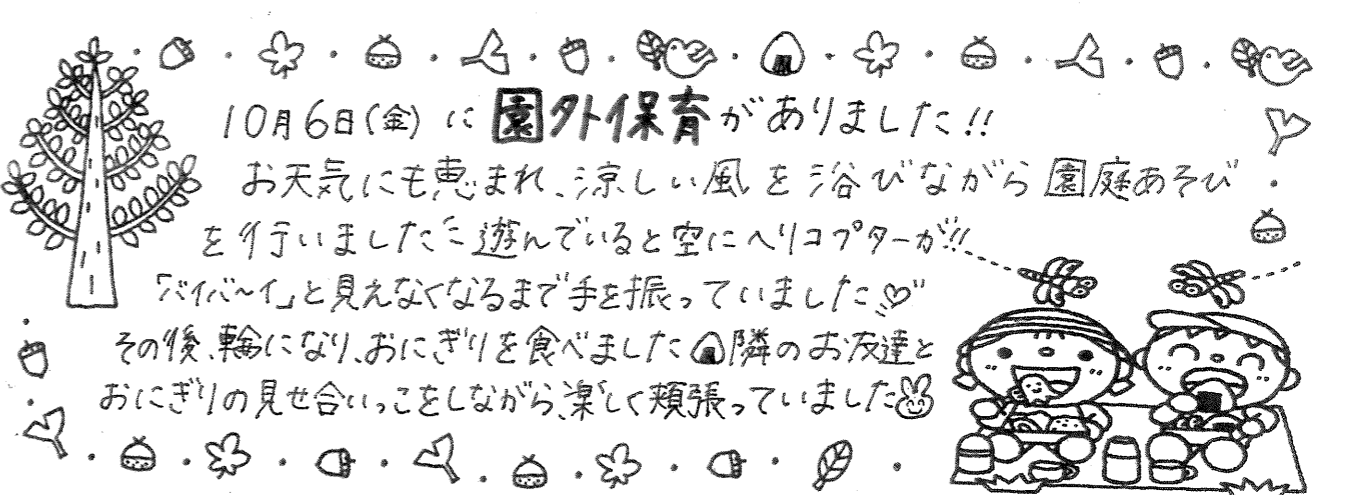 10月6日(金)に園外保育がありました!!
お天気にも恵まれ、涼しい風を浴びながら園庭あそび
を行いました!! 遊んでいると空にヘリコプターが!!
「バイバ〜イ」と見えなくなるまで手を振っていました♡
その後、輪になり、おにぎりを食べました🍙隣のお友達と
おにぎりの見せ合いっこをしながら、楽しく頬張っていました